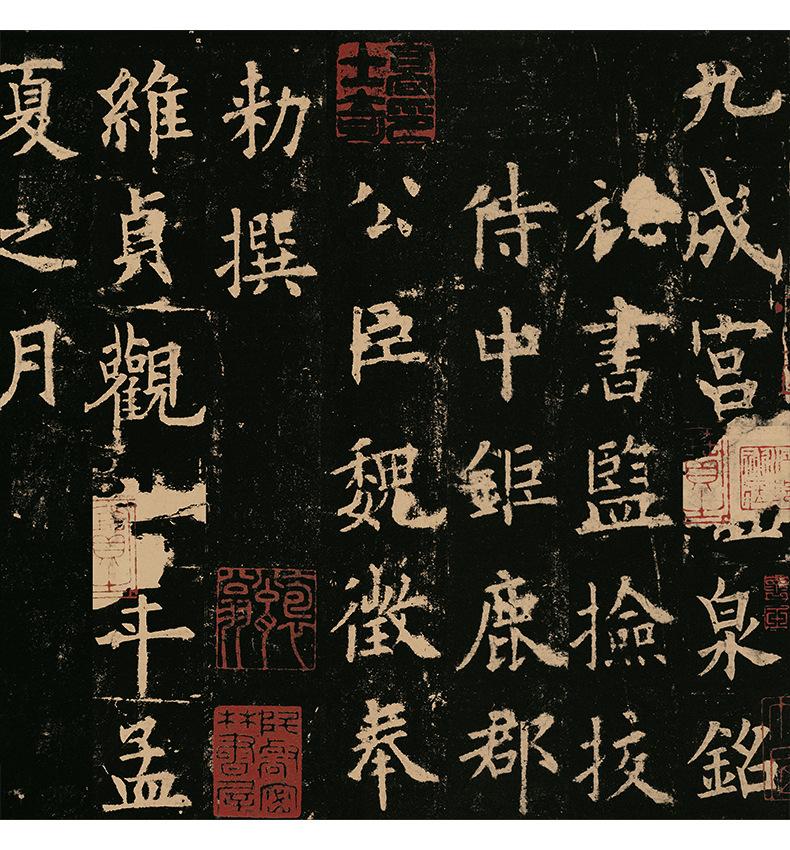 九成宮泉銘
秘書監撿挍
侍中鉅鹿郡
公臣魏徵奉
勑撰
維貞觀年孟
夏之月